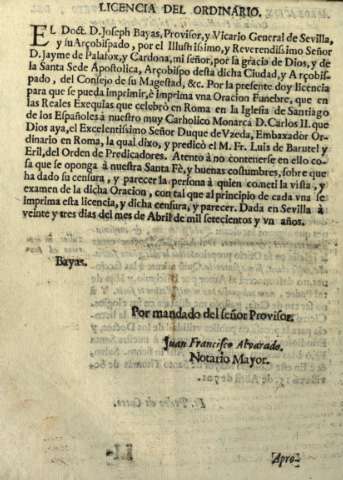 LICENCIA DEL ORDINARIO.
EL Doct. D. Joseph Bayas, Provisor, y Vicario General de Sevilla,
y su Arçobispado, por el Illustrissimo, y Reverendissimo Señor
D. Jayme de Palafox, y Cardona, mi señor, por la gracia de Dios, y de
la Santa Sede Apostolica, Arçobispo desta dicha Ciudad, y Arçobis-
pado, del Consejo de su Magestad, &c. Por la presente doy licencia
para que se pueda imprimir, è imprima vna Oracion Funebre, que en
las Reales Exequias que celebrò en Roma en la Iglesia de Santiago
de los Españoles à nuestro muy Catholico Monarca D. Carlos II. que
Dios aya, el Excelentissimo Señor Duque de Vzeda, Embaxador Or-
dinario en Roma, la qual dixo, y predicò el M. Fr. Luis de Barutel y
Eril, del Orden de Predicadores. Atento à no contenerse en ello co-
sa que se oponga à nuestra Santa Fè, y buenas costumbres, sobre que
ha dado su censura, y parecer la persona à quien cometi la vista, y
examen de la dicha Oracion, con tal que al principio de cada vna se
imprima esta licencia, y dicha censura, y parecer. Dada en Sevilla à
veinte y tres dias del mes de Abril de mil setecientos y vn años.
Bayas.
Por mandado del señor Provisor.
Juan Francisco Alvarado.
Notario Mayor.
Apro-